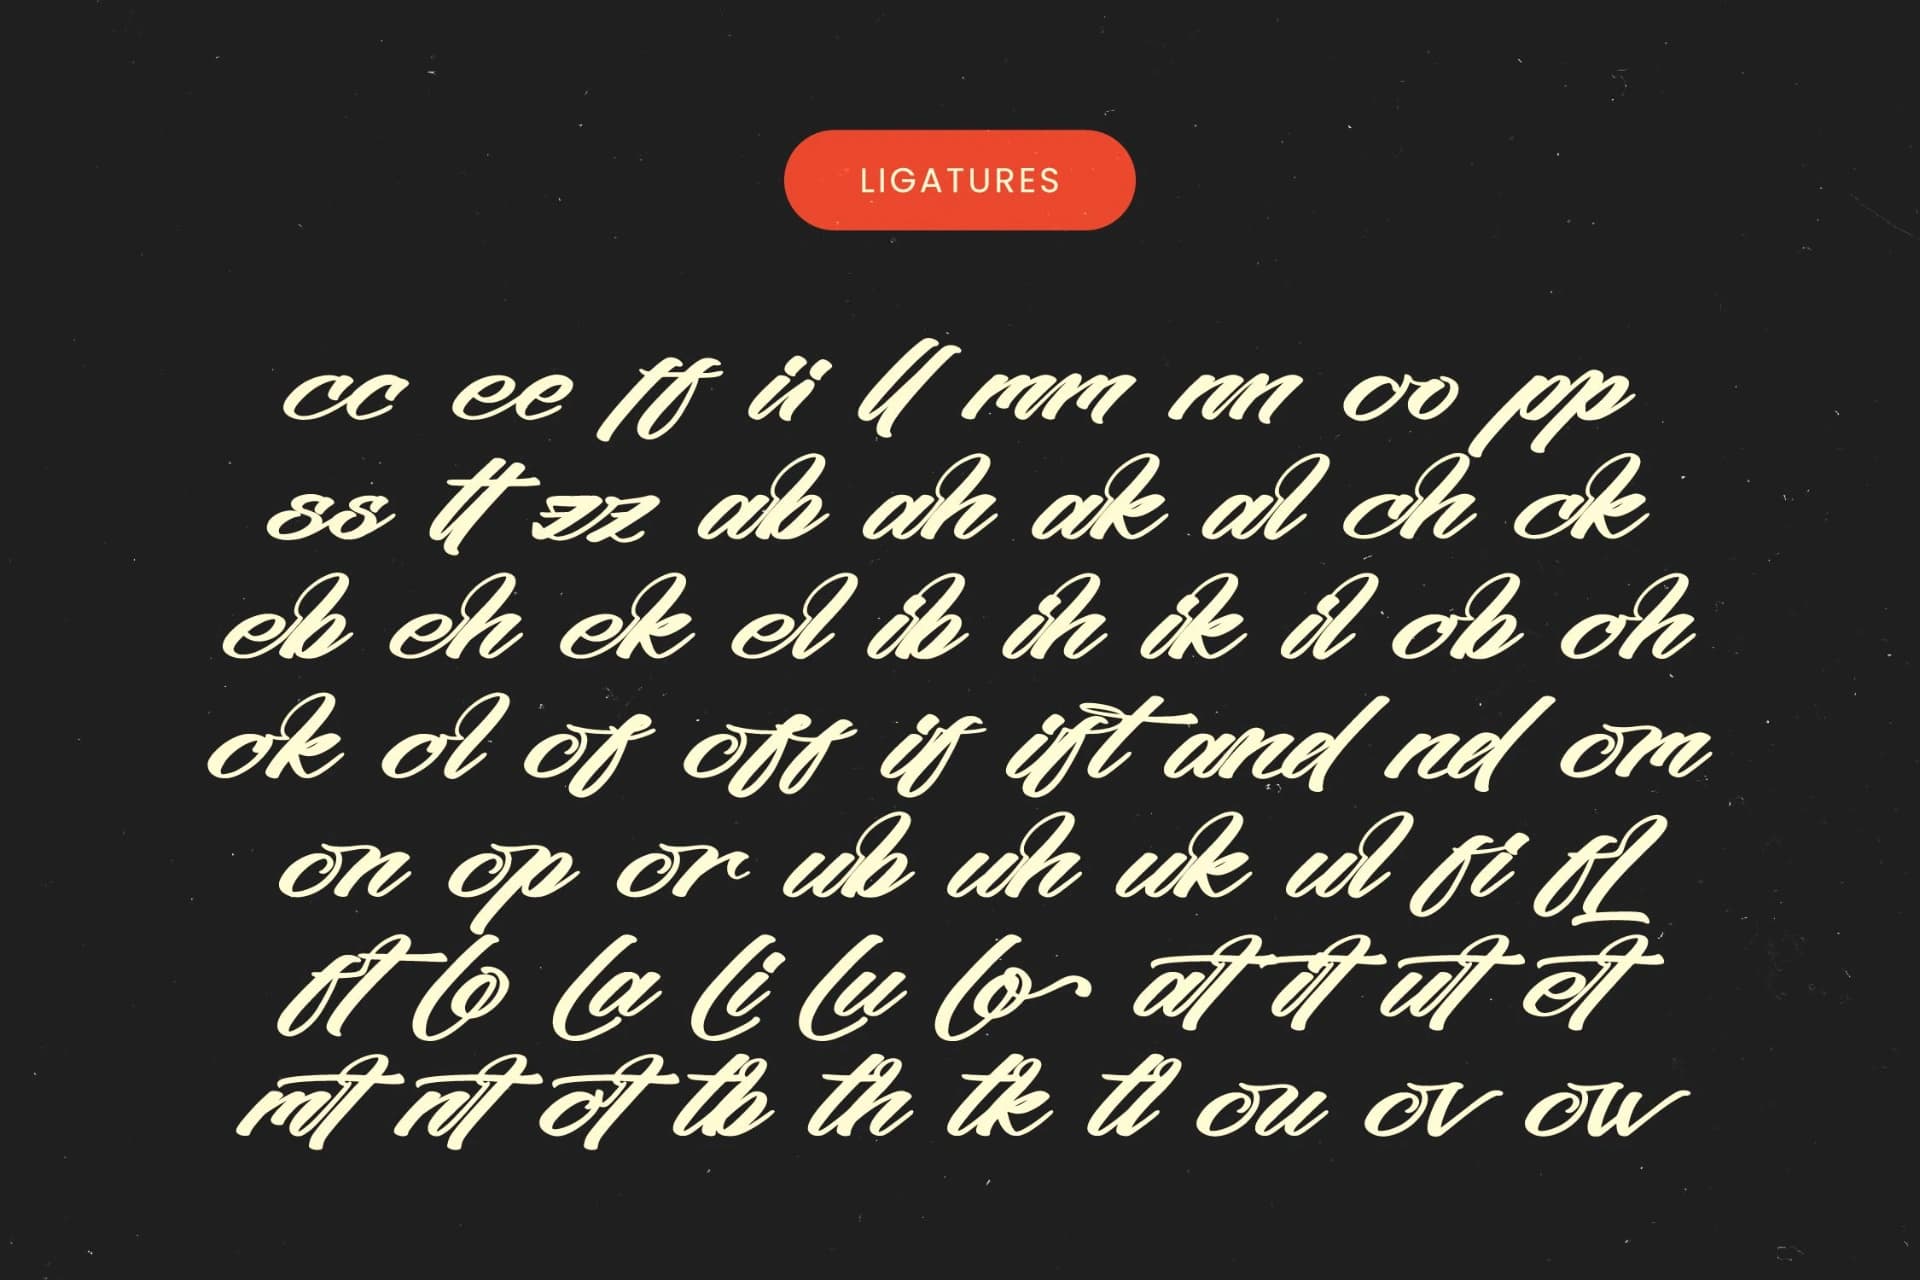 LIGATURES
cc ee ff ii ll mm nn oo pp
ss tt zz ab ah ak al ch ck
eb eh ek el ib ih ik il ob oh
ok ol of off if ift and nd om
on op or ub uh uk ul fi fl
ft Lo La Li Lu Lo at it ut et
mt nt ot tb th tk tl ou ov ow